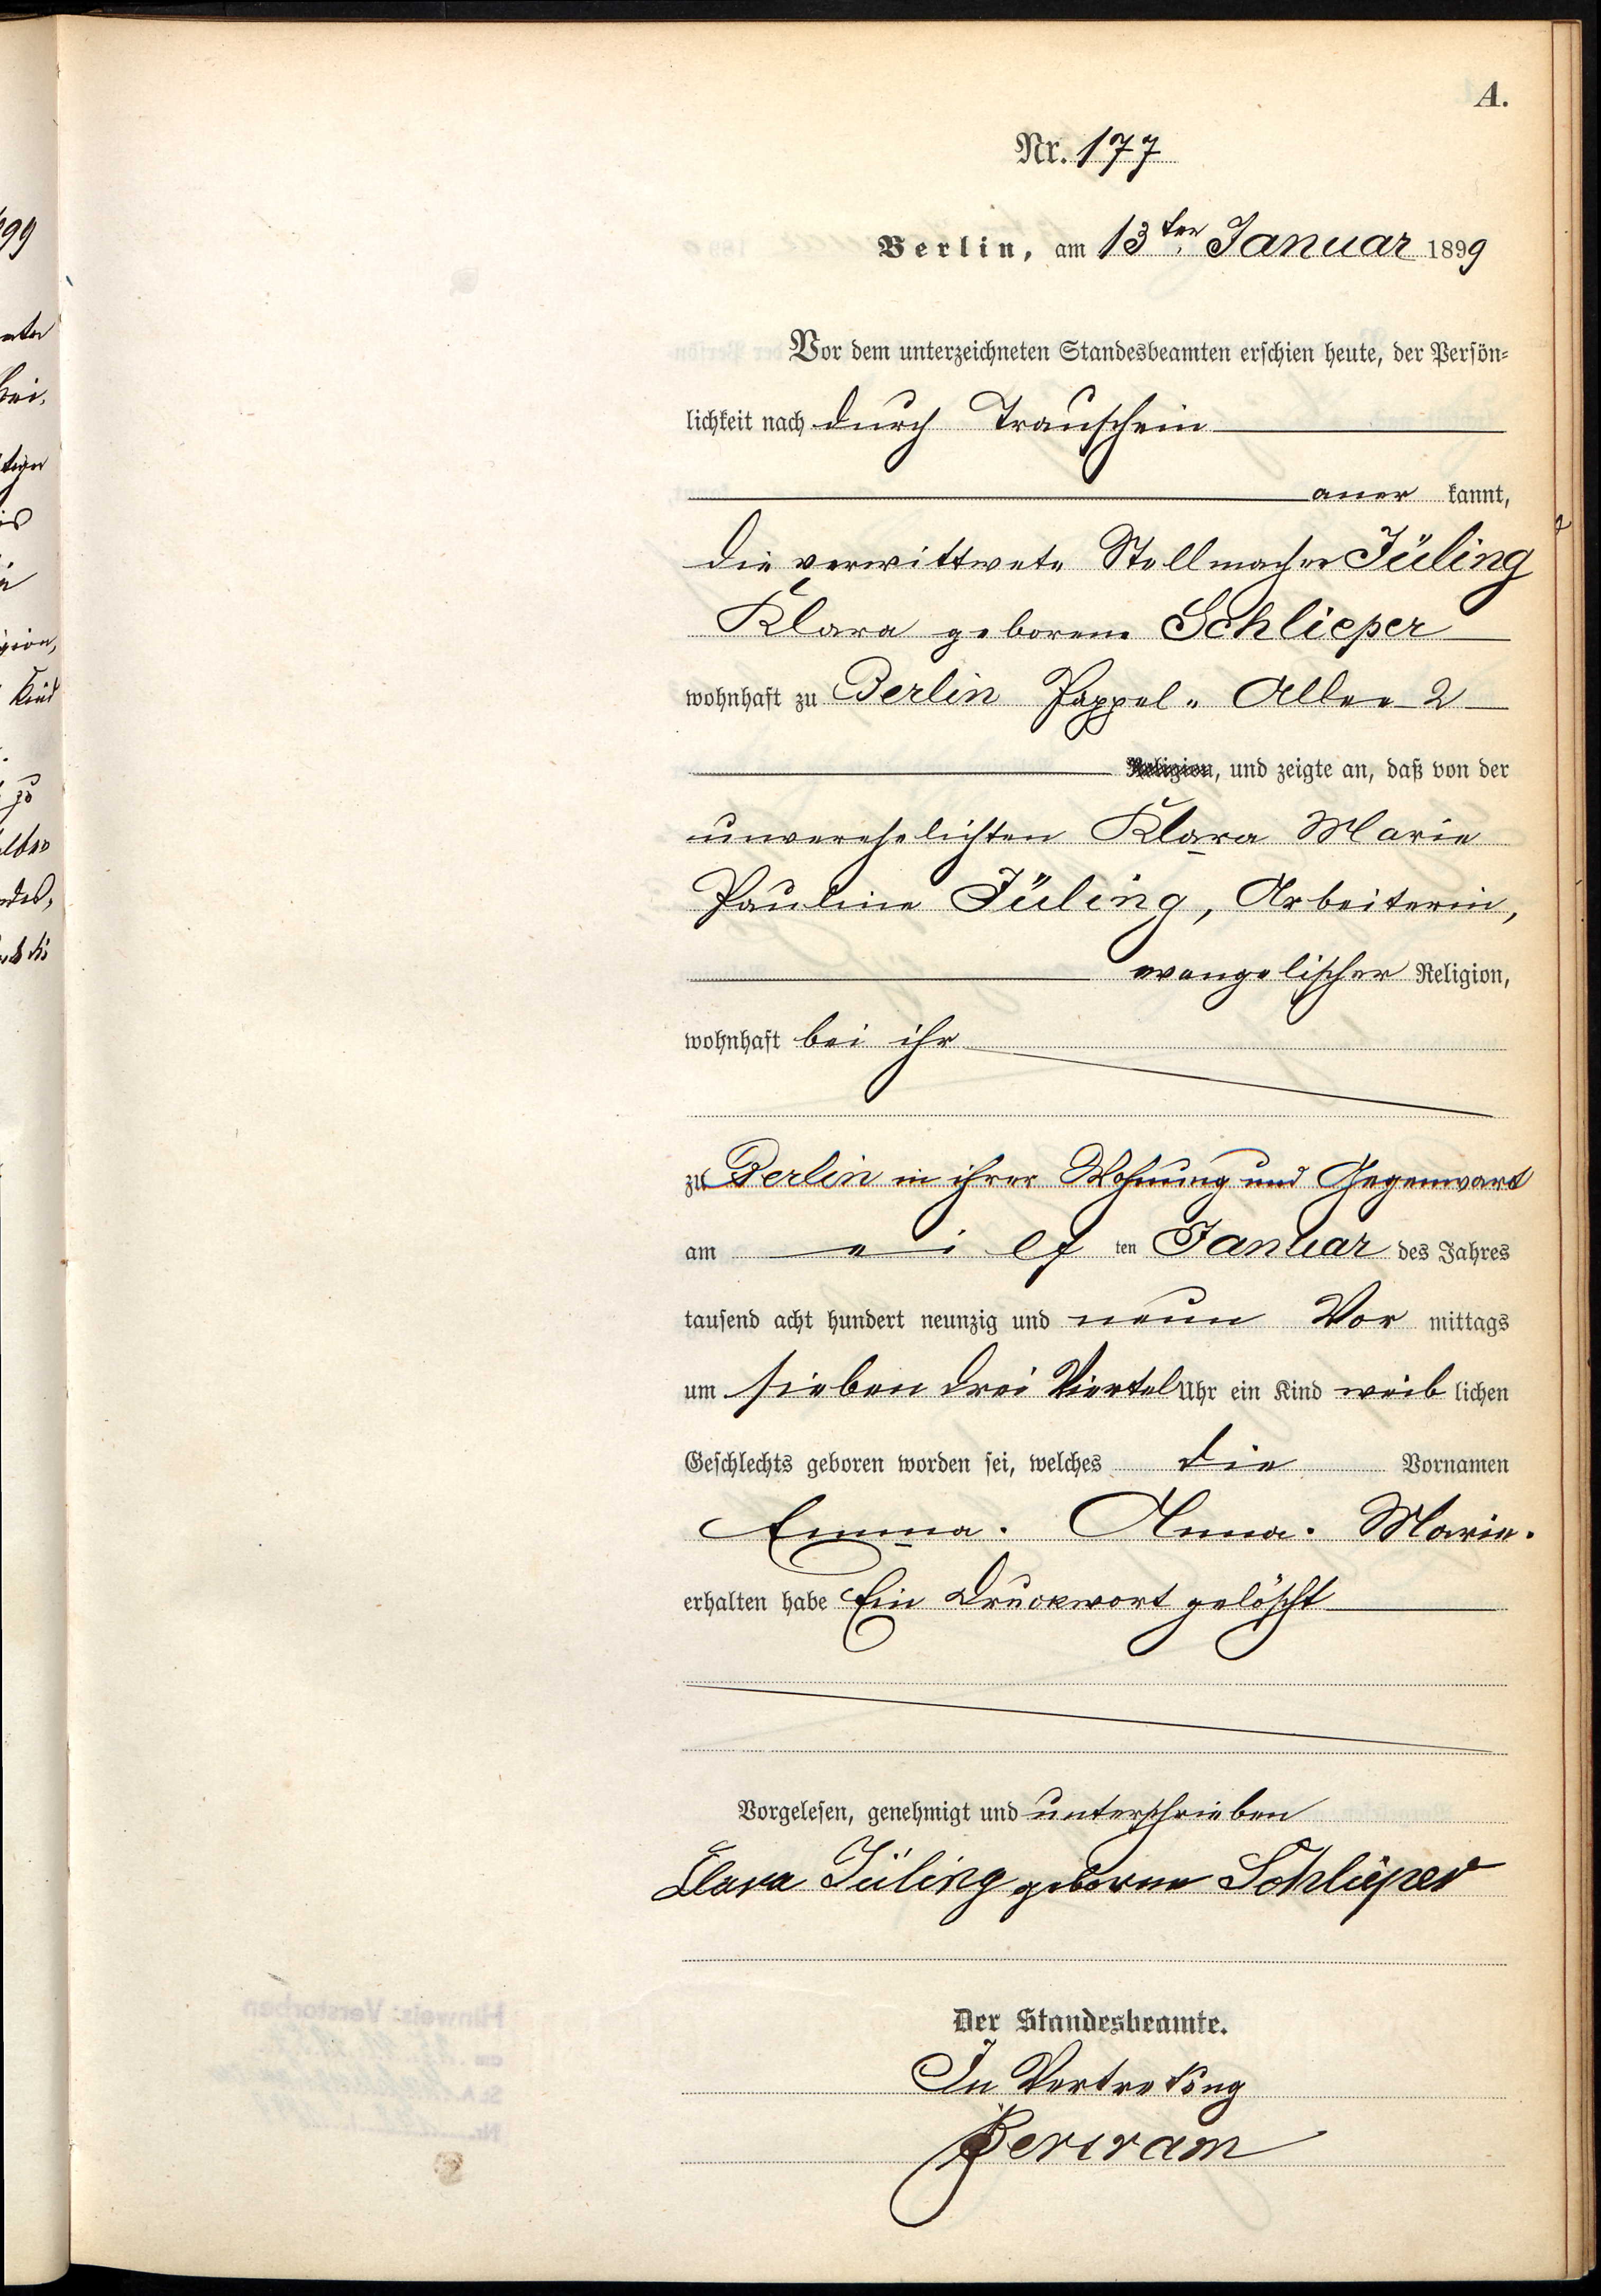 A.
Nr. 177
Berlin, am 13ten Januar 1899
Vor dem unterzeichneten Standesbeamten erschien heute, der Persön-
lichkeit nach durch Trauschein
aner kannt,
die verwittwete Stellmacher Jüling
Klara geborene Schlieper
wohnhaft zu Berlin Pappel-Allee 2
Religion, und zeigte an, daß von der
unverehelichten Klara Marie
Pauline Jüling, Arbeiterin,
evangelischer Religion,
wohnhaft bei ihr
zu Berlin in ihrer Wohnung und Gegenwart
am elften Januar des Jahres
tausend acht hundert neunzig und neun Vor mittags
um sieben drei Viertel Uhr ein Kind weib lichen
Geschlechts geboren worden sei, welches die Vornamen
Emma. Anna. Marie.
erhalten habe Ein Druckwort gelöscht
Vorgelesen, genehmigt und unterschrieben
Clara Jüling geborene Schlieper
Der Standesbeamte.
In Vertretung
Bertram